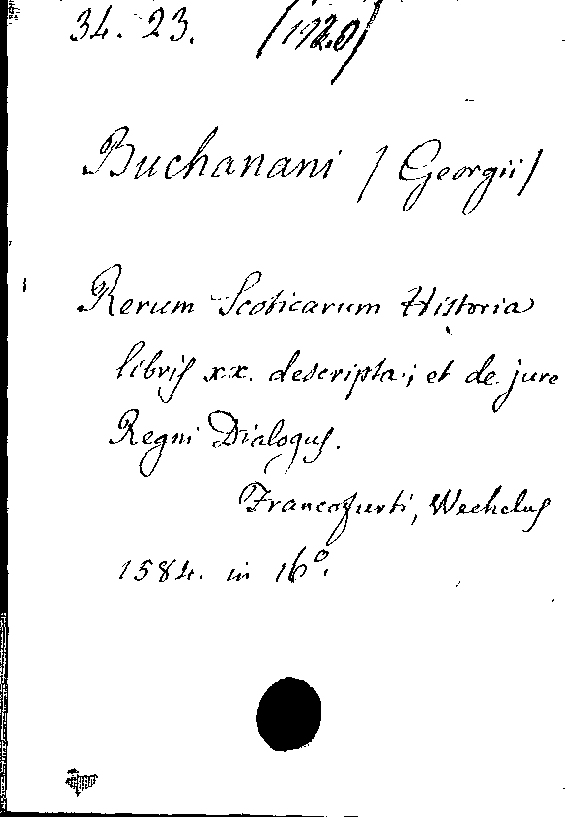 34. 23. (1720)
Buchanani / Georgii /
Rerum Scoticarum Historia
libris xx. descripta; et de jure
Regni Dialogus.
Francofurti, Wechelus
1584. in 16°.